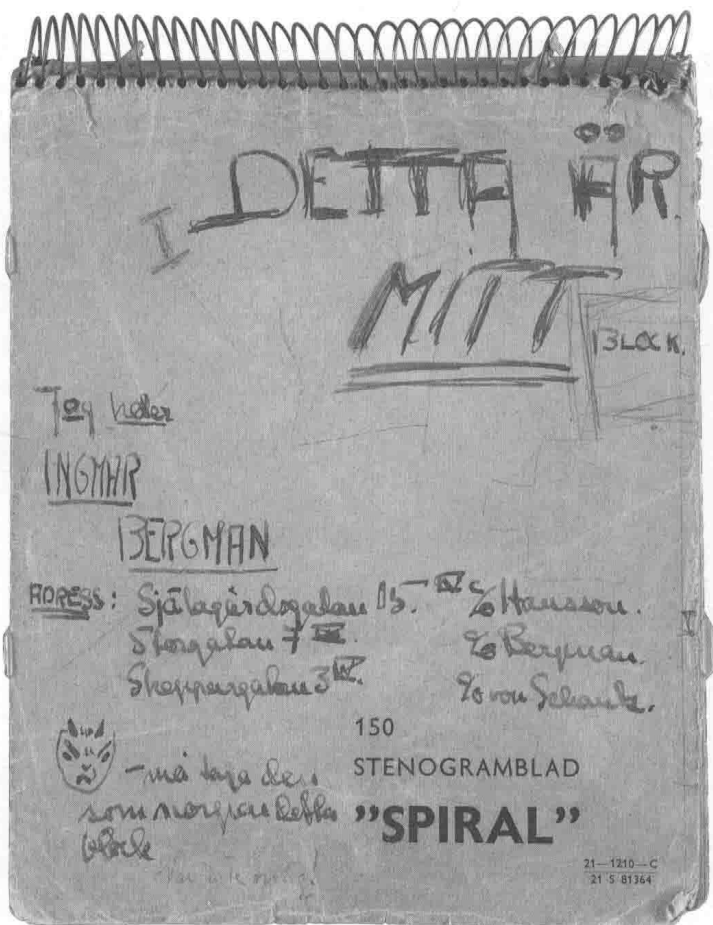 I DETTA ÄR.
MITT
BLOCK.
Jag heter
INGMAR
BERGMAN
ADRESS: Själagårdsgatan 15. IV c/o Hansson.
Storgatan 7 III c/o Bergman.
Skeppargatan 3 IV. c/o von Schantz.
– må taga den
som norpar detta
block
150
STENOGRAMBLAD
”SPIRAL”
21—1210—C
21 S 81364